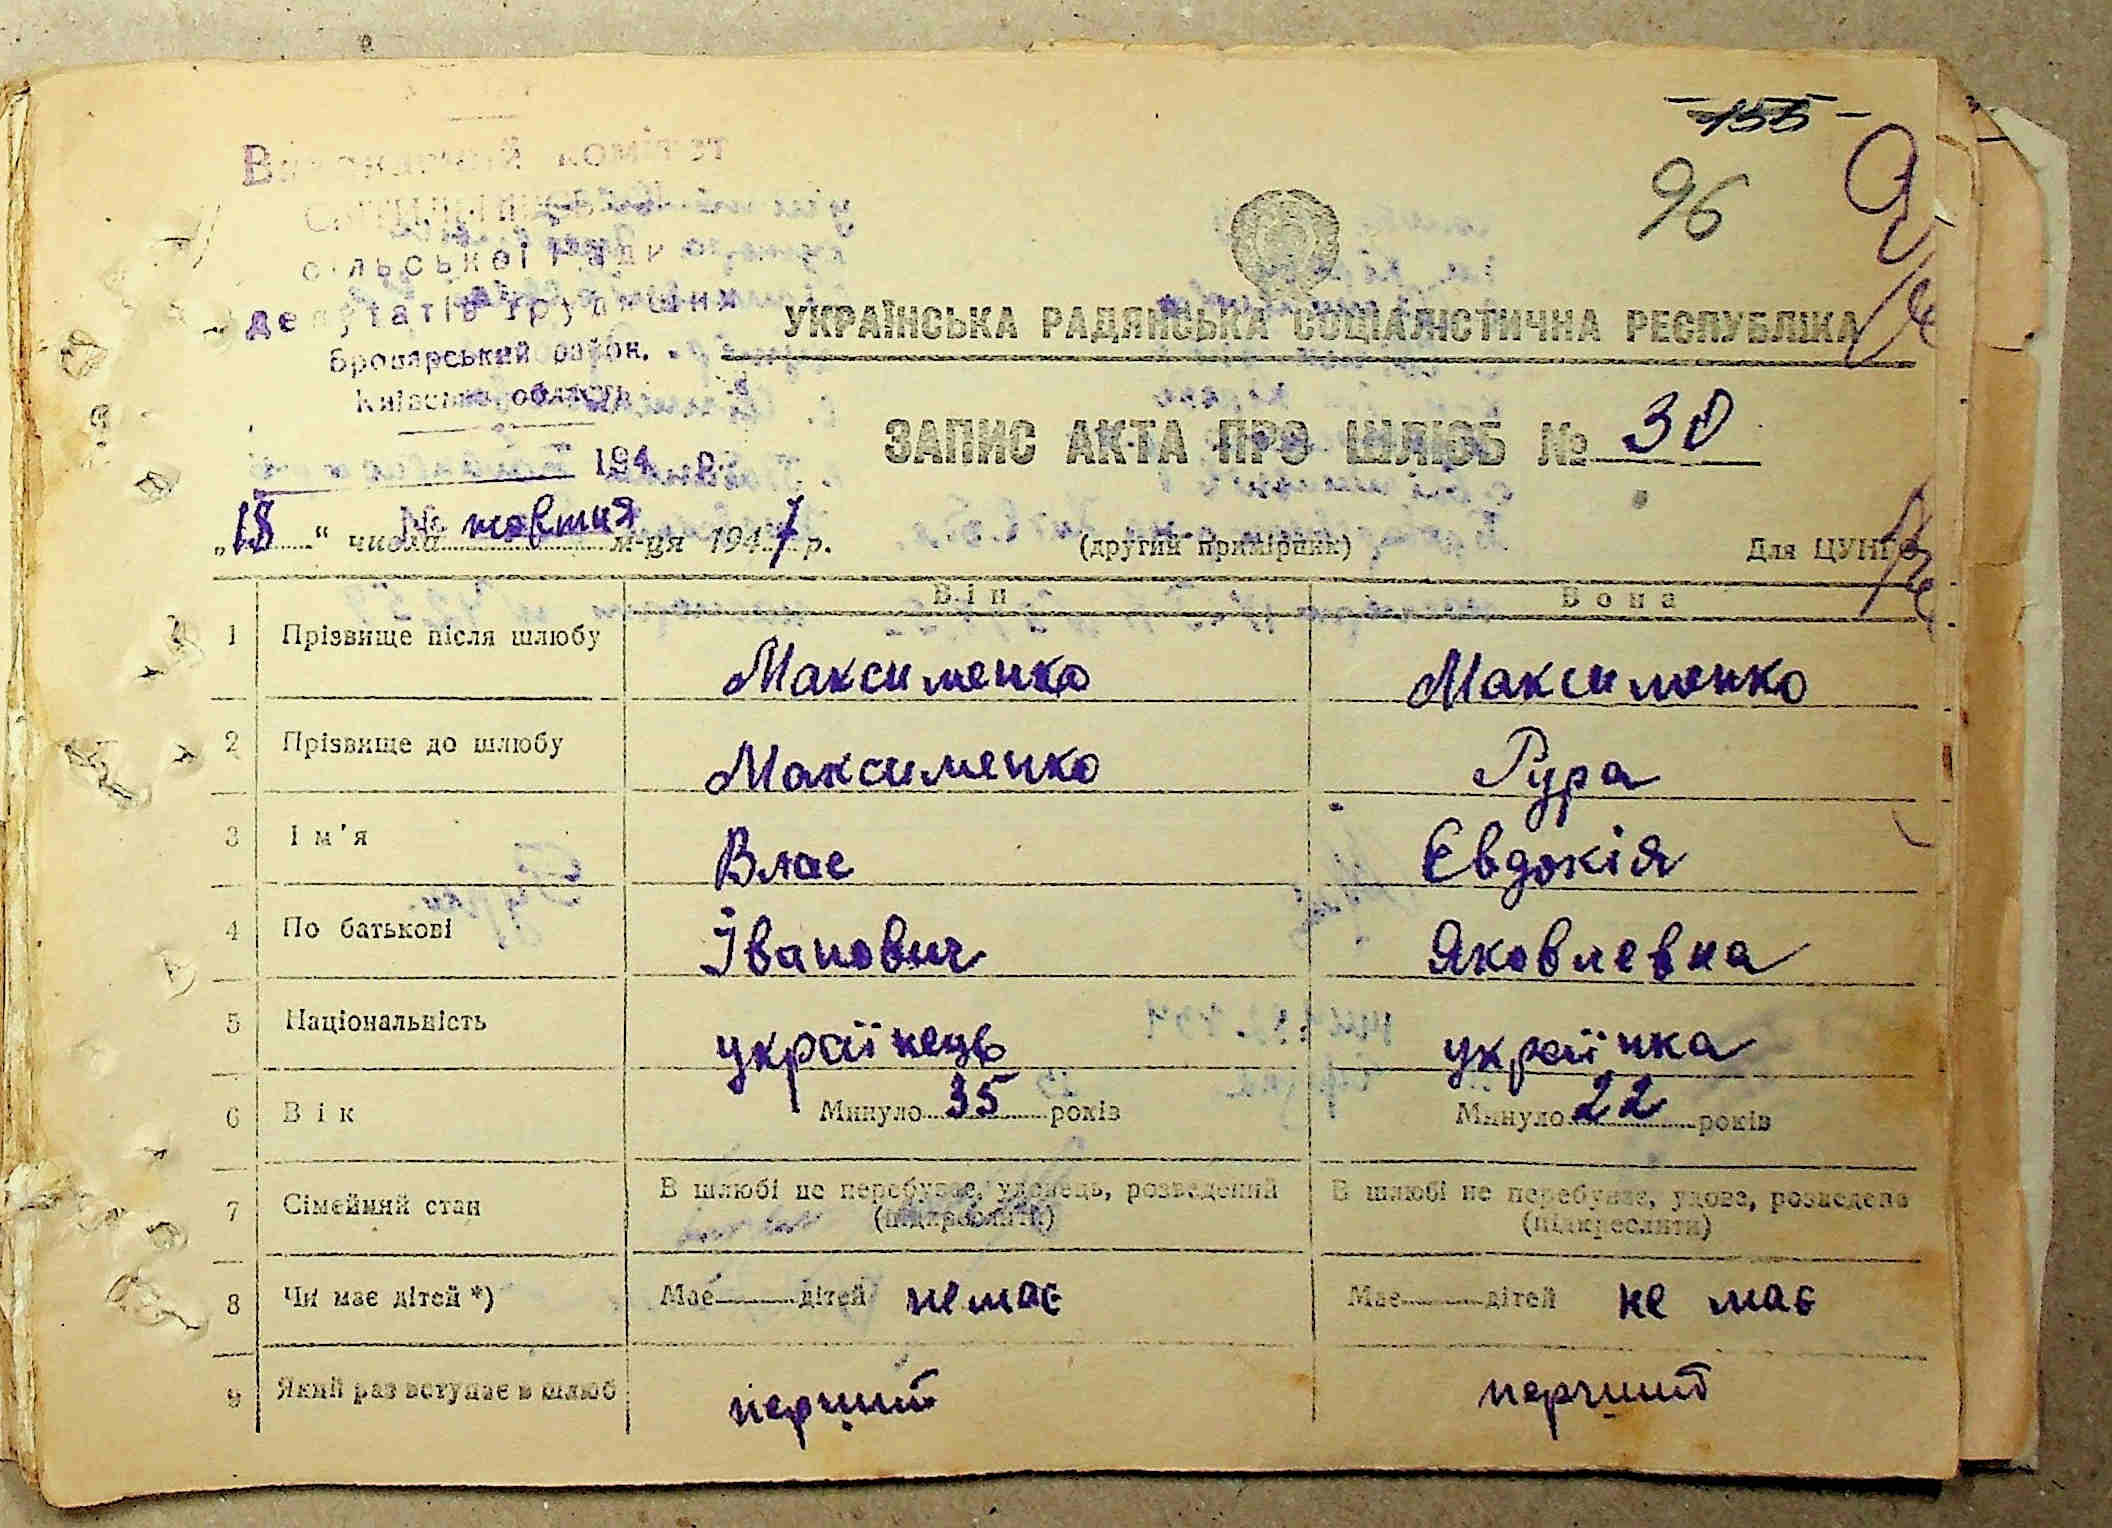 155
96
Виконавчий комітет
сільської Ради
депутатів трудящих
Броварський район,
Київська область
УКРАЇНСЬКА РАДЯНСЬКА СОЦІАЛІСТИЧНА РЕСПУБЛІКА
ЗАПИС АКТА ПРО ШЛЮБ № 30
194 р.
№
„18“ числа жовтня м-ця 1947 р.
(другий примірник)
Для ЦУНГО
Він Вона
1 Прізвище після шлюбу Максименко Максименко
2 Прізвище до шлюбу Максименко Рура
3 Ім'я Влас Євдокія
4 По батькові Іванович Яковлевна
5 Національність українець українка
6 Вік Минуло 35 років Минуло 22 років
7 Сімейний стан В шлюбі не перебуває, удовець, розведений (підкреслити) В шлюбі не перебуває, удова, розведена (підкреслити)
8 Чи має дітей *) Має дітей немає Має дітей не має
9 Який раз вступає в шлюб перший перший